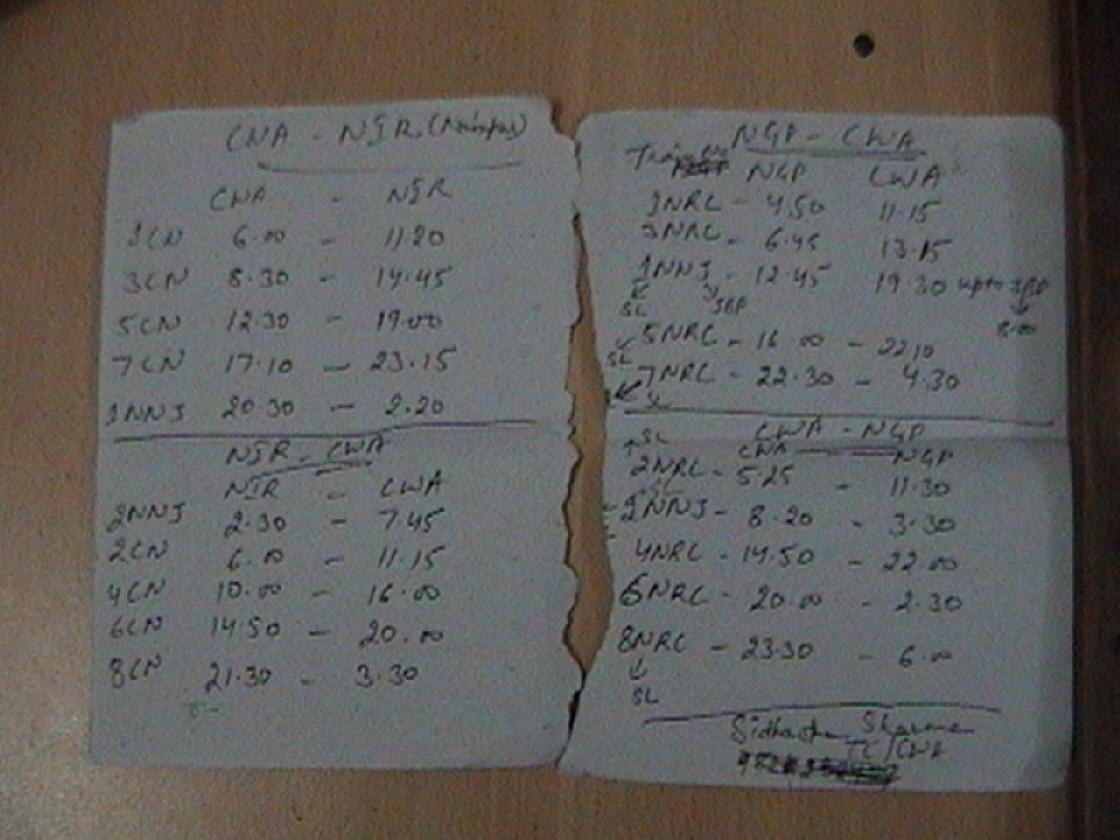 CWA - NIR (Nainpur)
CWA - NIR
1CN 6.00 - 11.20
3CN 8.30 - 14.45
5CN 12.30 - 19.00
7CN 17.10 - 23.15
1NNJ 20.30 - 2.20
NIR - CWA
NIR - CWA
2NNJ 2.30 - 7.45
2CN 6.00 - 11.15
4CN 10.00 - 16.00
6CN 14.50 - 20.00
8CN 21.30 - 3.30
NGP - CWA
Train No NGP CWA
1NRC - 4.50 11.15
3NRC - 6.45 13.15
1NNJ - 12.45 19.30 upto JBP
SL JBP 8.00
5NRC - 16.00 - 22.10
SL
7NRC - 22.30 - 4.30
SL
CWA - NGP
SL CWA NGP
2NRC - 5.25 - 11.30
2NNJ - 8.20 - 3.30
4NRC - 14.50 - 22.00
6NRC - 20.00 - 2.30
8NRC - 23.30 - 6.00
SL
Sharma
TC/CWA